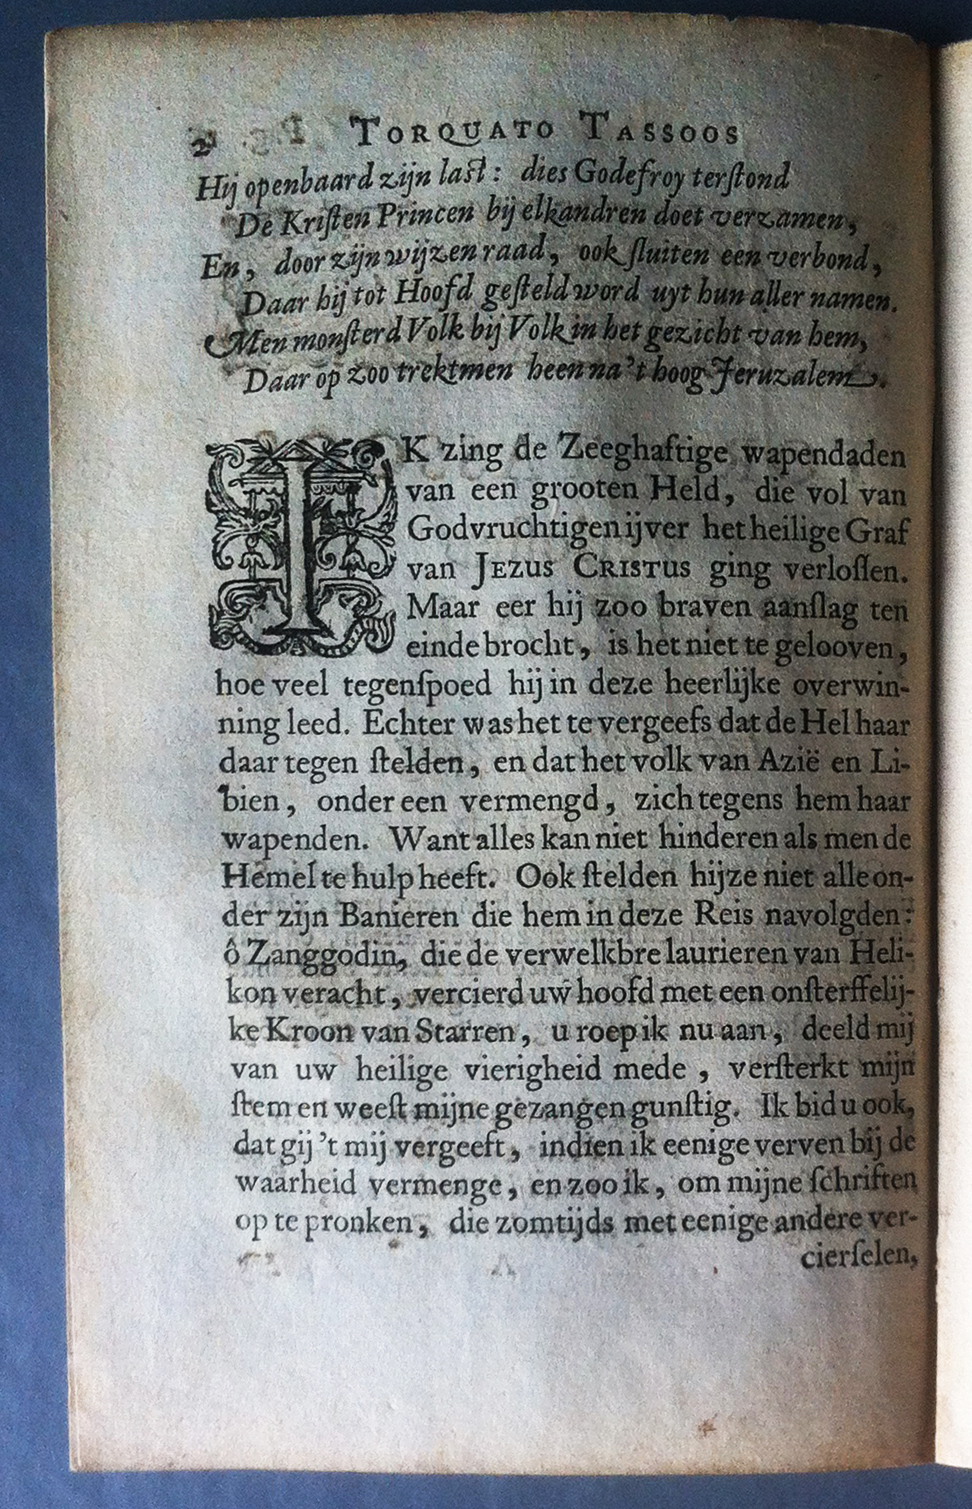 2 TORQUATO TASSOOS
Hij openbaard zijn laſt: dies Godefroy terſtond
De Kriſten Princen bij elkandren doet verzamen,
En, door zijn wijzen raad, ook ſluiten een verbond,
Daar hij tot Hoofd geſteld word uyt hun aller namen.
Men monſterd Volk bij Volk in het gezicht van hem,
Daar op zoo trektmen heen na't hoog Jeruzalem.
IK zing de Zeeghaftige wapendaden
van een grooten Held, die vol van
Godvruchtigen ijver het heilige Graf
van JEZUS CRISTUS ging verloſſen.
Maar eer hij zoo braven aanſlag ten
einde brocht, is het niet te gelooven,
hoe veel tegenſpoed hij in deze heerlijke overwin-
ning leed. Echter was het te vergeefs dat de Hel haar
daar tegen ſtelden, en dat het volk van Azië en Li-
bien, onder een vermengd, zich tegens hem haar
wapenden. Want alles kan niet hinderen als men de
Hemel te hulp heeft. Ook ſtelden hijze niet alle on-
der zijn Banieren die hem in deze Reis navolgden:
ô Zanggodin, die de verwelkbre laurieren van Heli-
kon veracht, vercierd uw hoofd met een onſterffelij-
ke Kroon van Starren, u roep ik nu aan, deeld mij
van uw heilige vierigheid mede, verſterkt mijn
ſtem en weeſt mijne gezangen gunſtig. Ik bid u ook,
dat gij 't mij vergeeft, indien ik eenige verven bij de
waarheid vermenge, en zoo ik, om mijne ſchriften
op te pronken, die zomtijds met eenige andere ver-
cierſelen,